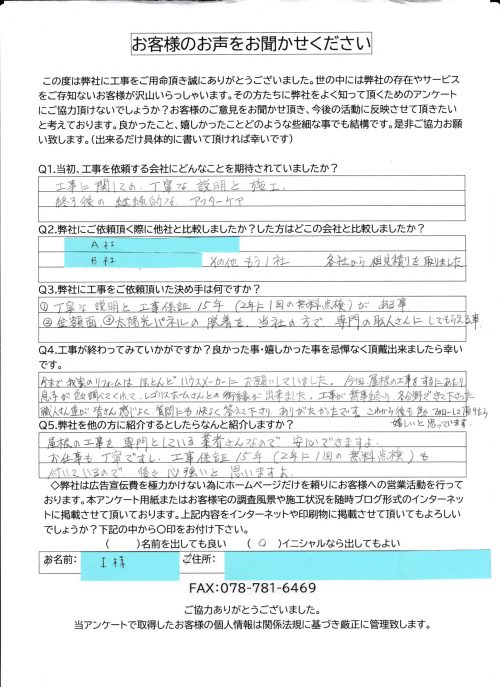 お客様のお声をお聞かせください
この度は弊社に工事をご用命頂き誠にありがとうございました。世の中には弊社の存在やサービス
をご存知ないお客様が沢山いらっしゃいます。その方たちに弊社をよく知って頂くためのアンケート
にご協力頂けないでしょうか？お客様のご意見をお聞かせ頂き、今後の活動に反映させて頂きたい
と考えております。良かったこと、嬉しかったことどのような些細な事でも結構です。是非ご協力お願
い致します。（出来るだけ具体的に書いて頂ければ幸いです）
Q1.当初、工事を依頼する会社にどんなことを期待されていましたか？
工事に関しての、丁寧な説明と施工、
終了後の継続的なアフターケア
Q2.弊社にご依頼頂く際に他社と比較しましたか？した方はどこの会社と比較しましたか？
A社
B社 その他もう1社 各社から相見積りを取りました
Q3.弊社に工事をご依頼頂いた決め手は何ですか？
①丁寧な説明と工事保証15年（2年に1回の無料点検）がある事
②金額面③太陽光パネルの脱着を、当社の方で専門の職人さんにしてもらえる事
Q4.工事が終わってみていかがですか？良かった事・嬉しかった事を忌憚なく頂戴出来ましたら幸い
です。
今まで我家のリフォームはほとんどハウスメーカーにお願いしていました。今回屋根の工事をするにあたり
息子が色々調べてくれて、レゴリスホームさんとの御縁が出来ました。工事が無事終り、
職人さん達が皆さん感じよく質問にも快よく答えて下さりありがたかったです。これから後も長
嬉しいと思っています。
Q5.弊社を他の方に紹介するとしたらなんと紹介しますか？
屋根の工事を専門としている業者さんなので安心できますよ。
お仕事も丁寧ですし、工事保証15年（2年に1回の無料点検）も
付いているので後々心強いと思いますよ。
◇弊社は広告宣伝費を極力かけない為にホームページだけを頼りにお客様への営業活動を行って
おります。本アンケート用紙またはお客様宅の調査風景や施工状況を随時ブログ形式のインターネッ
トに掲載させて頂いております。上記内容をインターネットや印刷物に掲載させて頂いてもよろしい
でしょうか？下記の中から〇印をお付け下さい。
（　）名前を出しても良い （○）イニシャルなら出してもよい
お名前： I様 ご住所：
FAX:078-781-6469
ご協力ありがとうございました。
当アンケートで取得したお客様の個人情報は関係法規に基づき厳正に管理致します。